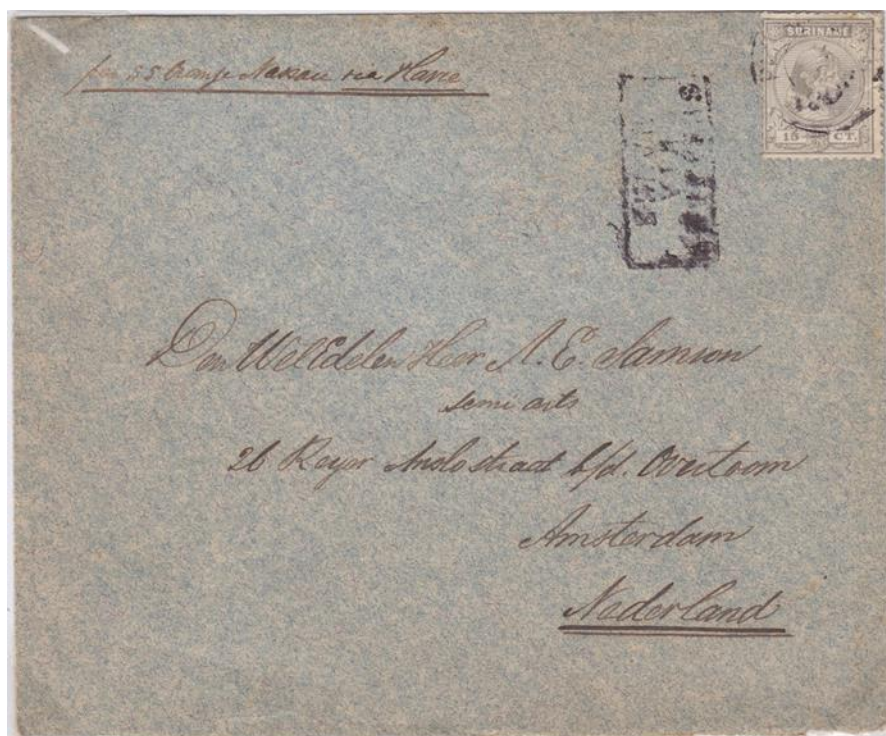 per SS Oranje Nassau via Havre
SURINAME
15 CT.
VIA
Den WelEdelen Heer A. E. Samson
semi arts
26 Reyer Anslostraat b/d. Overtoom
Amsterdam
Nederland